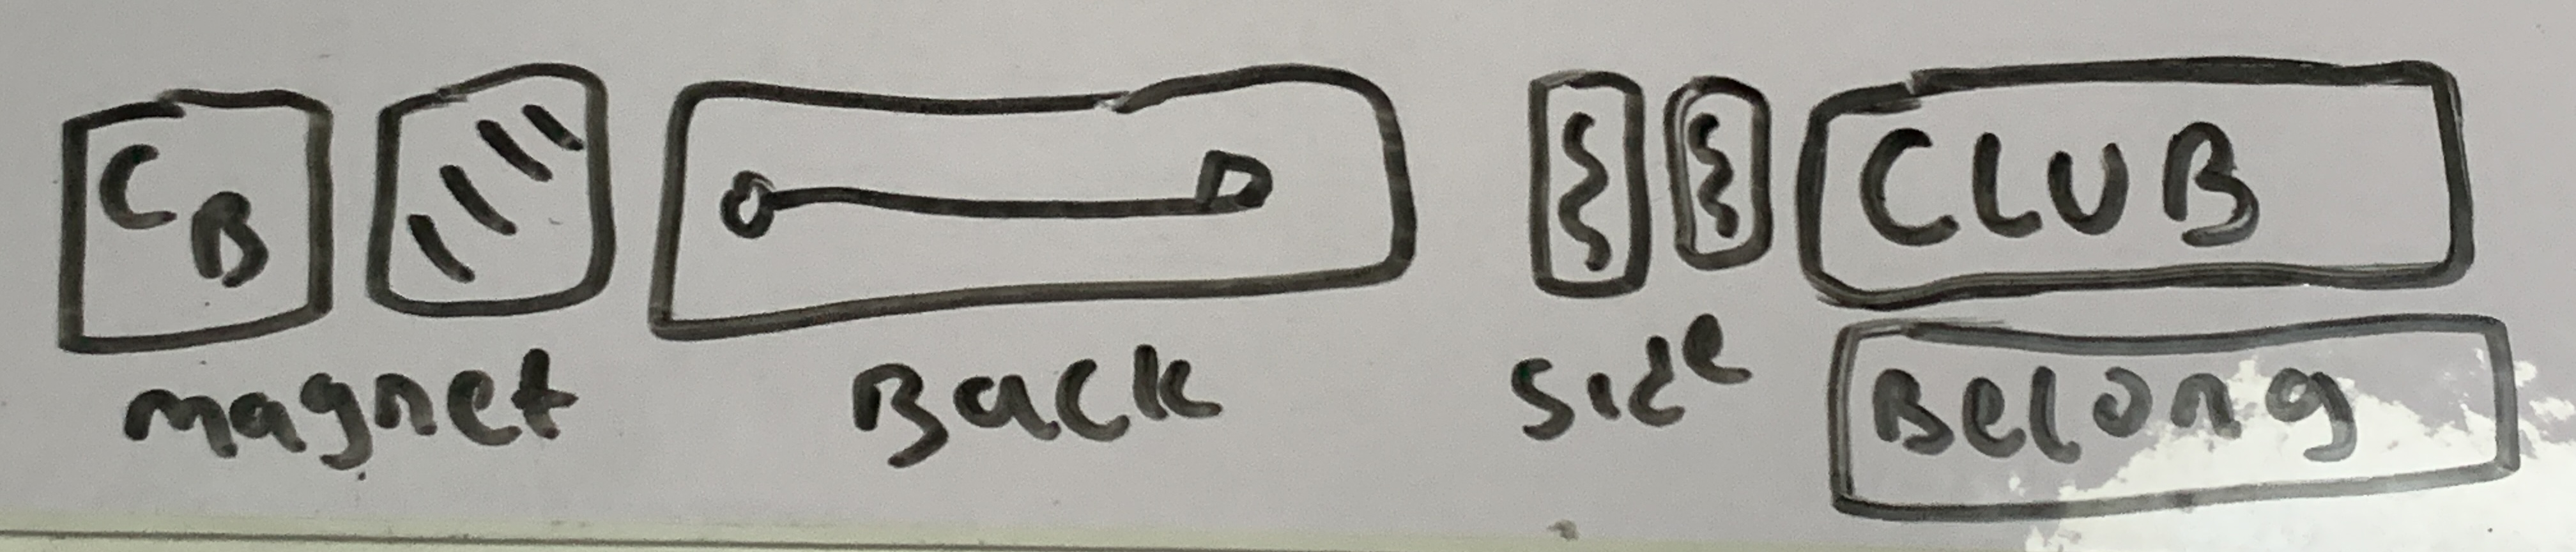 C
B
magnet
Back
Side
CLUB
Belong